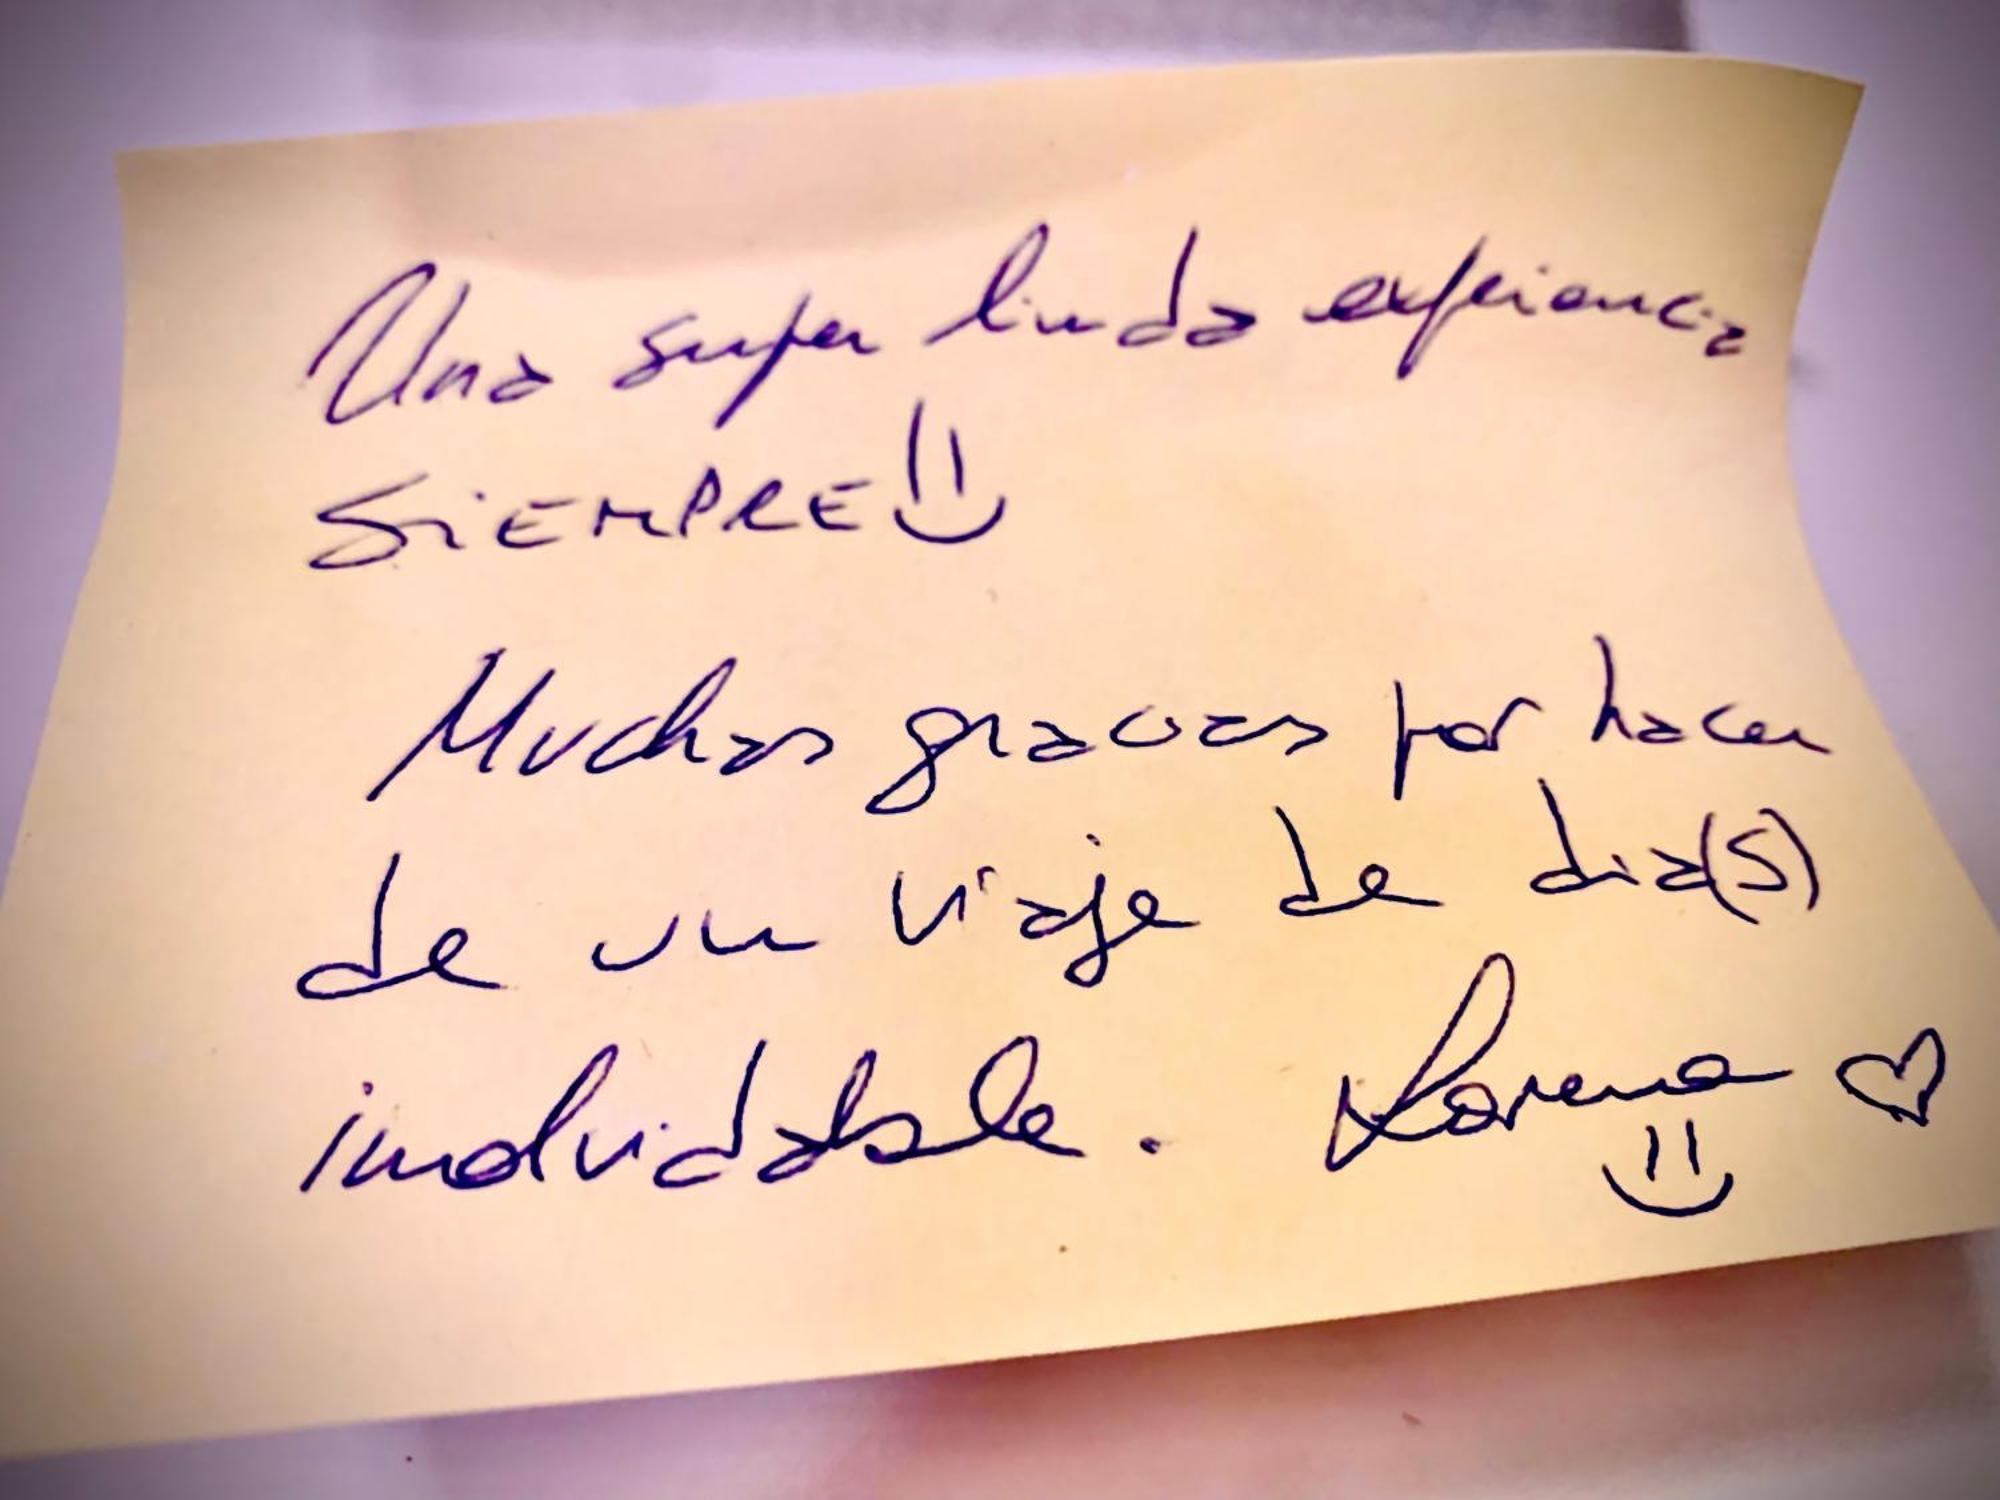 Una super linda experiencia
SIEMPRE
Muchas gracias por hacer
de un viaje de dia(s)
inolvidable. Lorena